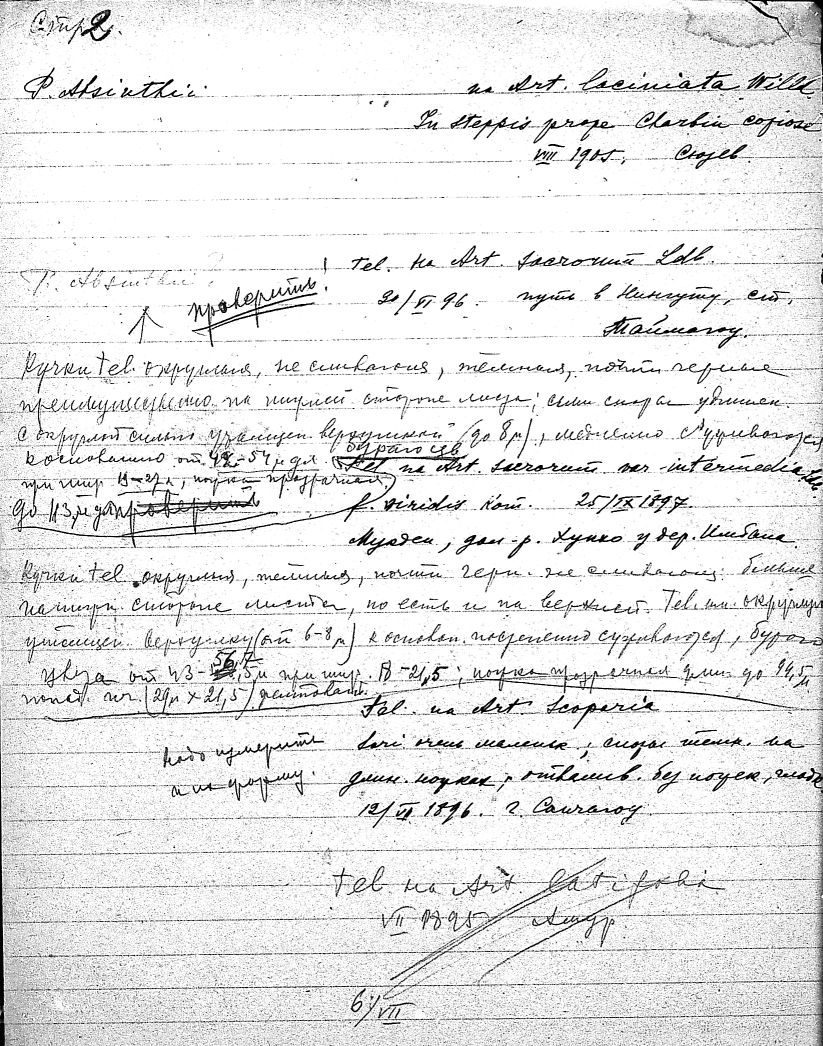 Стр 2.
P. Absinthii
на Art. laciniata Willd.
In steppis prope Charbin copiose
VIII 1905. Сюзев
P. Absinthii?
проверить!
tel. на Art. sacrorum Ldb.
20/VI 96. путь в Нингуту, ст.
Таймагоу.
Кучки tel. округлыя, не сливающияся, темныя, почти черные
преимущественно на нижней стороне листа; сами споры удлинен.
с округлой сильно утолщен верхушкой (до 8 μ), медленно суживающейся
к основанию от 42-54 μ дл.
бураго цв
при шир 19-27 μ, ножка прозрачная
до 113 μ дл проверить
tel. на Art. sacrorum var intermedia Ldb.
f. viridis Kom. 25/IX 1897.
Мукден, дол. р. Хунхо у дер. Импань
Кучки tel. округлыя, темныя, почти черн. не сливающ. больше
на нижн. стороне листа, но есть и на верхней. Tel. им. округлую
утолщен. верхушку (от 6-8 μ) к основан. постепенно суживающуюся, бураго
цвета от 43-56,7 μ при шир. 18-21,5; ножка прозрачная длин. до 94,5 μ
попад. (29 μ × 21,5)
tel. на Art. Scoparia
надо измерить
и на форму.
Sori очень маленьк, споры темн. на
длин. ножках, отвалив. без ножек, гладк
12/VI 1896. г. Санчагоу.
tel. на Art. latifolia
VII 1895 Амур.
6/VII